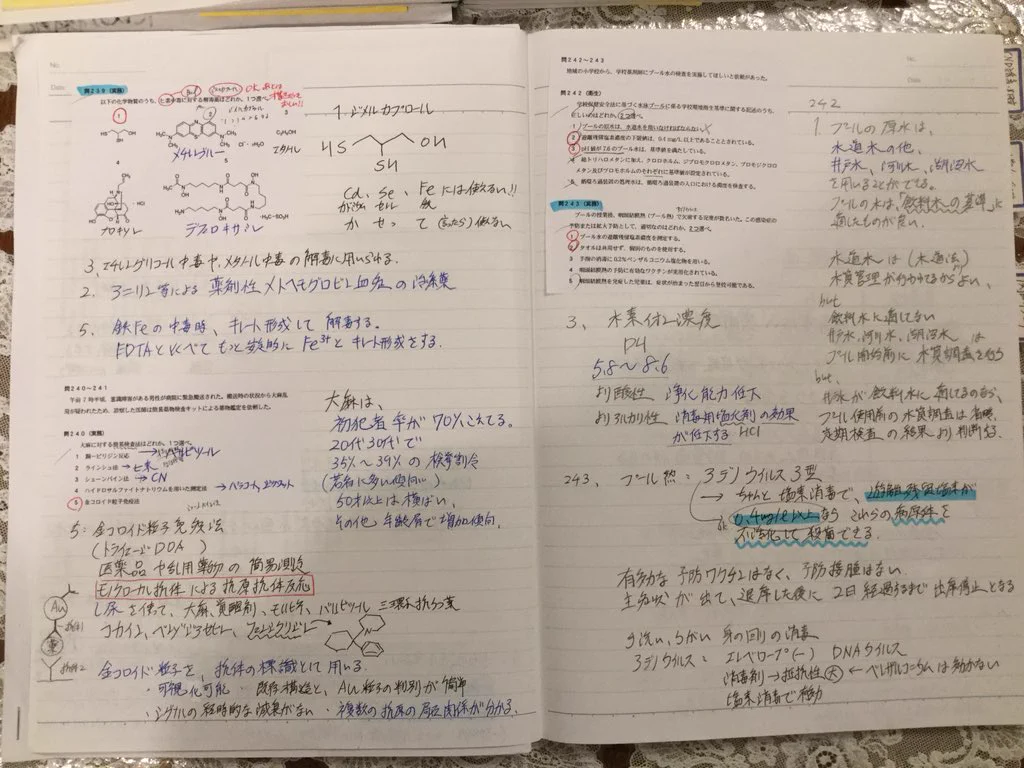 No.
Date
問239(実務)
以下の化学物質のうち、ヒ素中毒に対する解毒薬はどれか。1つ選べ。
1
2
3
C₂H₅OH
メチレンブルー
エタノール
4
5
プロキシル
デフェロキサミン
1. ジメルカプロール
HS
OH
SH
Cd、Se、Feには使えない!!
カドミウム セレン 鉄
か せっ て
3. エチレングリコール中毒や、メタノール中毒の解毒に用いられる。
2. アニリン等による薬剤性メトヘモグロビン血症の治療薬
5. 鉄Feの中毒時、キレート形成して解毒する。
EDTAとくらべてもっと安定的にFe³⁺とキレート形成をする。
問240〜241
午前7時半頃、意識障害がある男性が病院に緊急搬送された。搬送時の状況から大麻乱
用が疑われたため、診察した医師は簡易薬物検査キットによる薬物鑑定を依頼した。
問240(実務)
大麻に対する簡易検査法はどれか。1つ選べ。
1 銅−ピリジン反応 → バルビツール
2 ラインシュ法 → ヒ素
3 シェーンバイン法 → CN
4 ハイドロサルファイトナトリウムを用いた測定法 → パラコート、ジクワット
5 金コロイド粒子免疫法
大麻は、
初犯者率が70%こえてる。
20代30代で
35%〜39%の検挙割合
(若者に多い傾向)
50才以上は横ばい、
その他、年齢層で増加傾向。
5: 金コロイド粒子免疫法
(トライエージDOA)
医薬品や乱用薬物の簡易測定
モノクローナル抗体による抗原抗体反応
し尿を使って、大麻、覚醒剤、モルヒネ、バルビツール 三環系抗うつ薬
コカイン、ベンゾジアゼピン、フェンシクリジン
Au
抗体1
薬
抗体2
金コロイド粒子を、抗体の標識として用いる。
・可視化可能 ・既存構造と、Au粒子の判別が簡単
・シグナルの経時的な減衰がない ・複数の抗原の局在関係が分かる。
No.
Date
問242〜243
地域の小学校から、学校薬剤師にプール水の検査を実施してほしいと依頼があった。
問242(衛生)
学校保健安全法に基づく水泳プールに係る学校環境衛生基準に関する記述のうち、
正しいのはどれか。2つ選べ。
1 プールの原水は、水道水を用いなければならない。
2 遊離残留塩素濃度の下限値は、0.4 mg/L以上であることとされている。
3 pH値が7.6のプール水は、基準値を満たしている。
4 総トリハロメタンに加え、クロロホルム、ジブロモクロロメタン、ブロモジクロロ
メタン及びブロモホルムのそれぞれに基準値が設定されている。
5 循環ろ過装置の処理水は、循環ろ過装置の入口における濁度を検査する。
問243(実務)
プールの授業後、咽頭結膜熱(プール熱)で欠席する児童が数名いた。この感染症の
予防または拡大予防として、適切なのはどれか。2つ選べ。
1 プール水の遊離残留塩素濃度を測定する。
2 タオルは共用せず、個別のものを使用する。
3 手指の消毒に0.2%ベンザルコニウム塩化物を用いる。
4 咽頭結膜熱の予防に有効なワクチンが実用化されている。
5 咽頭結膜熱を発症した児童は、症状が治まった翌日から登校可能である。
242
1. プールの原水は、
水道水の他、
井戸水、河川水、湖沼水
を用いることができる。
プールの水は、飲料水の基準に
適したものが良い。
水道水は(水道法)
水質管理が行われてるからよい。
but
飲料水に適してない
井戸水、河川水、湖沼水は
プール開始前に水質調査を行う
but,
井水が飲料水に適してるのなら、
プール使用前の水質調査は省略。
定期検査の結果より判断する。
3、水素イオン濃度
pH
5.8〜8.6
より酸性 浄化能力低下
よりアルカリ性 消毒用塩素剤の効果
が低下する HCl
243、プール熱:アデノウイルス3型
→ ちゃんと塩素消毒で、遊離残留塩素が
0.4mg/L以上ならこれらの病原体を
不活化して殺菌できる。
有効な予防ワクチンはなく、予防接種はない。
主症状が出て、退席した後に2日経過するまで出席停止となる
手洗い、うがい 身の回りの消毒
アデノウイルス:エンベロープ(−) DNAウイルス
消毒剤→抵抗性大 ← ベンザルコニウムは効かない
塩素消毒で有効